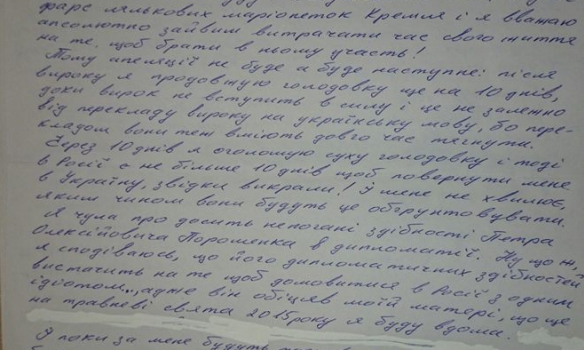 фарс лялькових маріонеток Кремля і я вважаю
абсолютно зайвим витрачати час свого життя
на те, щоб брати в ньому участь!
Тому апеляції не буде а буде наступне: після
вироку я продовжую голодовку ще на 10 днів,
доки вирок не вступить в силу і це не залежно
від перекладу вироку на українську мову, бо пере-
кладом вони теж вміють довго час тягнути.
Через 10 днів я оголошую суху голодовку і тоді
в Росії є не більше 10 днів щоб повернути мене
в Україну, звідки викрали! І мене не хвилює,
яким чином вони будуть це обґрунтовувати.
Я чула про досить непогані здібності Петра
Олексійовича Порошенка в дипломатії. Ну що ж,
я сподіваюсь, що його дипломатичних здібностей
вистачить на те щоб домовитися в Росії з одним
ідіотом, адже він обіцяв моїй матері, що ще
на травневі свята 2015 року я буду вдома.
І поки за мене будуть